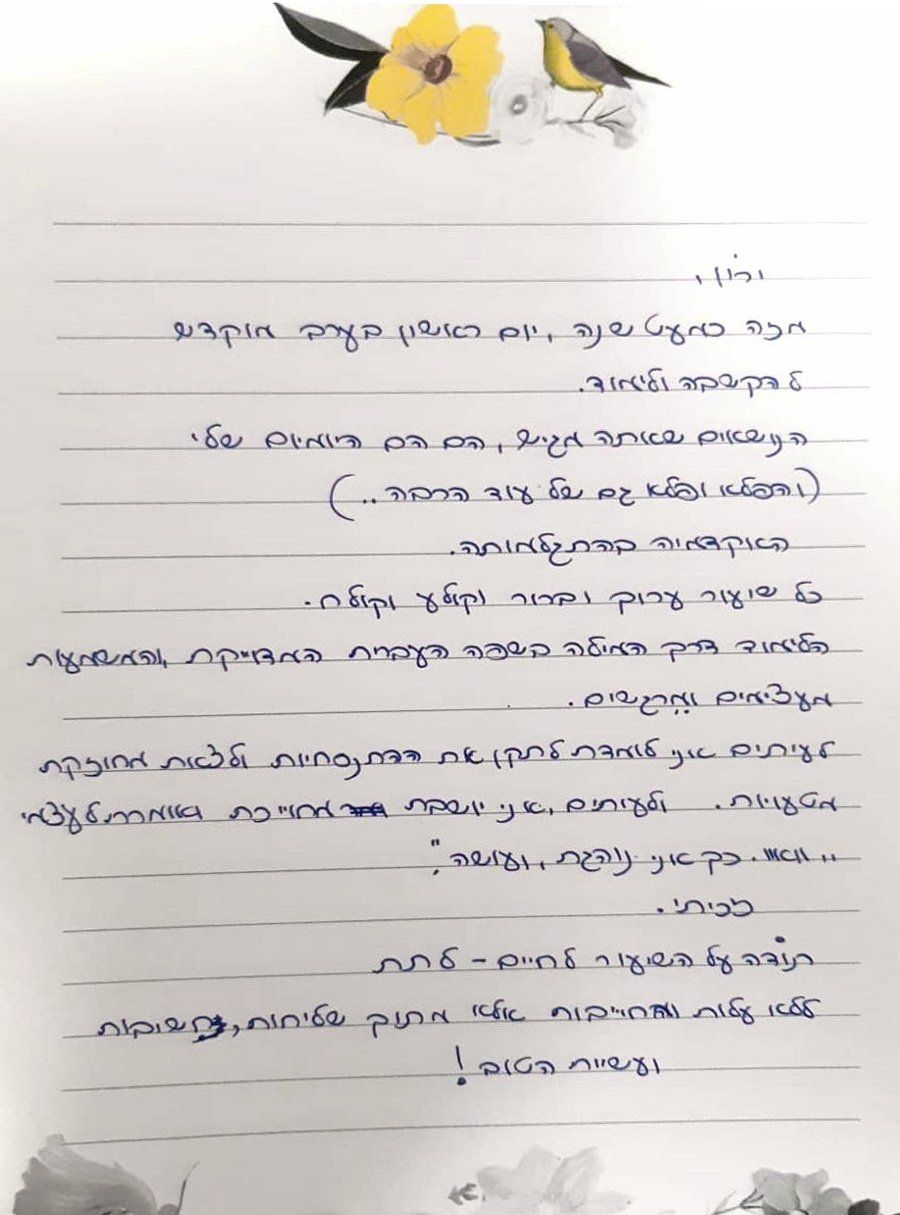 ירון,
מזה כמעט שנה, יום ראשון בערב מוקדש
להקשבה ולימוד.
הנושאים שאתה מגיש, הם הם היומיום שלי
(והפלא ופלא גם של עוד הרבה..)
האקדמיה בהתגלמותה.
כל שיעור ערוך וברור וקולע וקולח.
הלימוד דרך המילה בשפה העברית המדוייקת, והמשמעות
מעצימים ומרגשים.
לעיתים אני לומדת לתקן את ההתנסחויות ולצאת מחוזקת
מטעויות. ולעיתים, אני יושבת מחוייכת ואומרת לעצמי
"וואוו. כך אני נוהגת, ועושה".
זכיתי.
תודה על השיעור לחיים - לתת
ללא עלות ומחוייבות אלא מתוך שליחות, חשיבות
ועשיית הטוב!